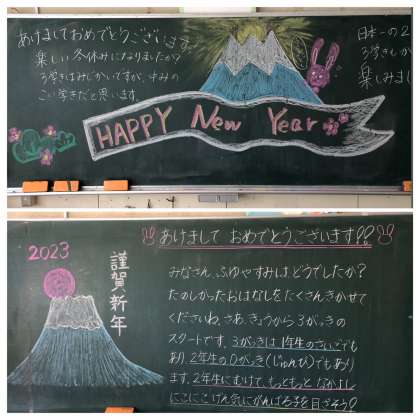 あけましておめでとうございます。
楽しい冬休みになりましたか?
3学きはみじかいですが、中みの
こい学きだと思います。
HAPPY New Year
日本一の2
3学きもか
楽しみまし
2023
謹賀新年
あけまして おめでとうございます!!
みなさん、ふゆやすみはどうでしたか?
たのしかったおはなしをたくさんきかせて
くださいね。さあ、きょうから3がっきの
スタートです。3がっきは1年生のさいごでも
あり、2年生の0がっき(じゅんび)でもあり
ます。2年生にむけて、もっともっと なかよし
にこにこ げん気にがんばる子を目ざそう♪